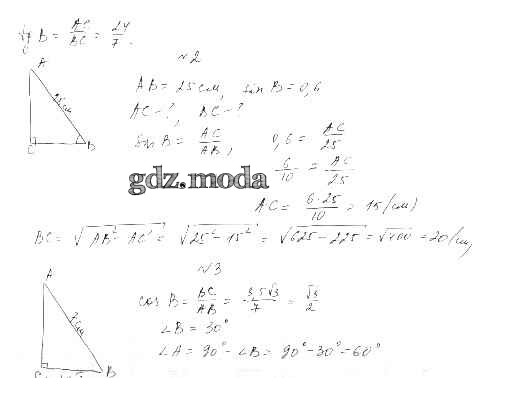 tg B = AC/BC = 24/7.
№2
A
25 см
C B
AB = 25 см, sin B = 0,6
AC - ?, BC - ?
sin B = AC/AB, 0,6 = AC/25
6/10 = AC/25
gdz.moda
AC = 6·25/10 = 15 (см)
BC = √AB² - AC² = √25² - 15² = √625 - 225 = √400 = 20 (см)
№3
A
7 см
B
cos B = BC/AB = 3,5√3/7 = √3/2
∠B = 30°
∠A = 90° - ∠B = 90° - 30° = 60°